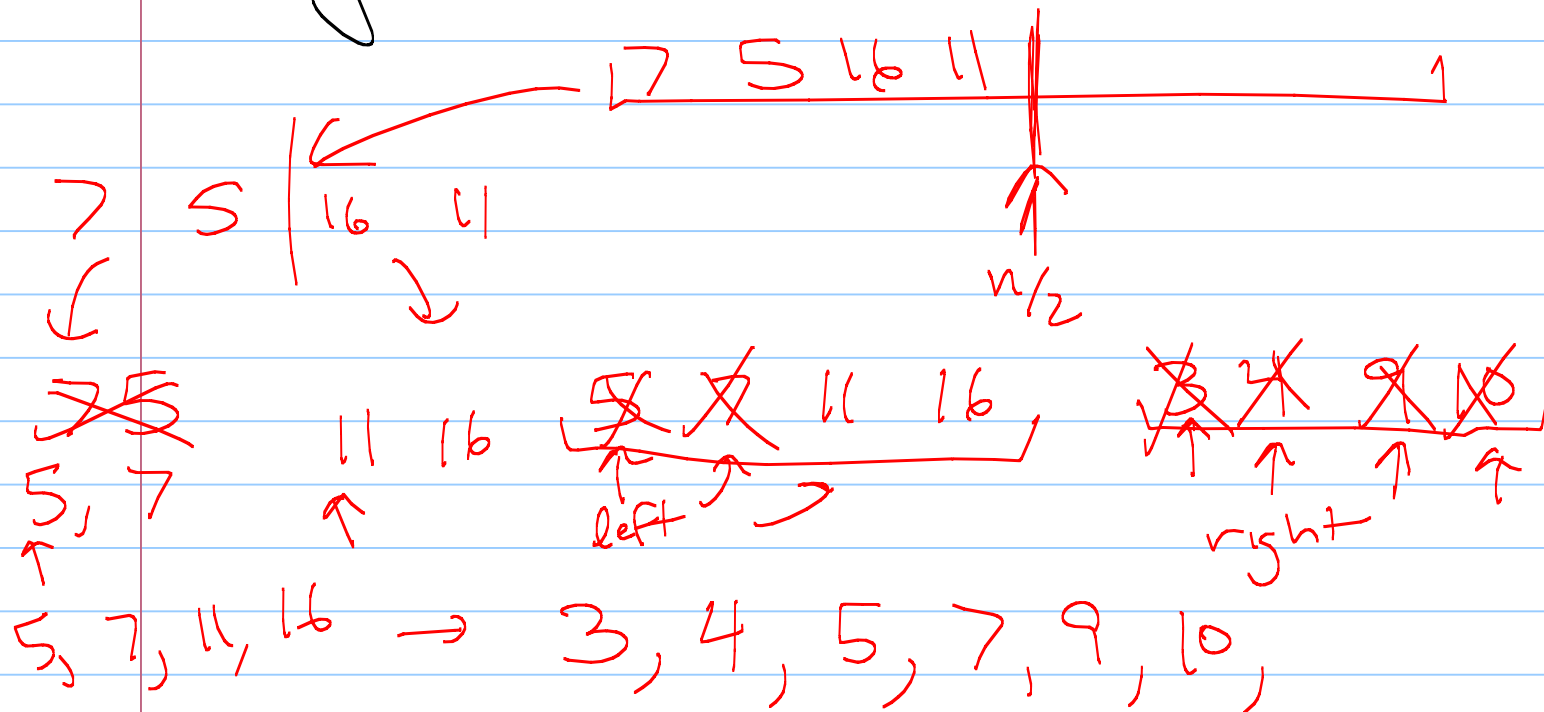 7 5 16 11
7 5 16 11
n/2
7 5 11 16 5 7 11 16 3 4 9 10
5, 7
left right
5, 7, 11, 16 → 3, 4, 5, 7, 9, 10,